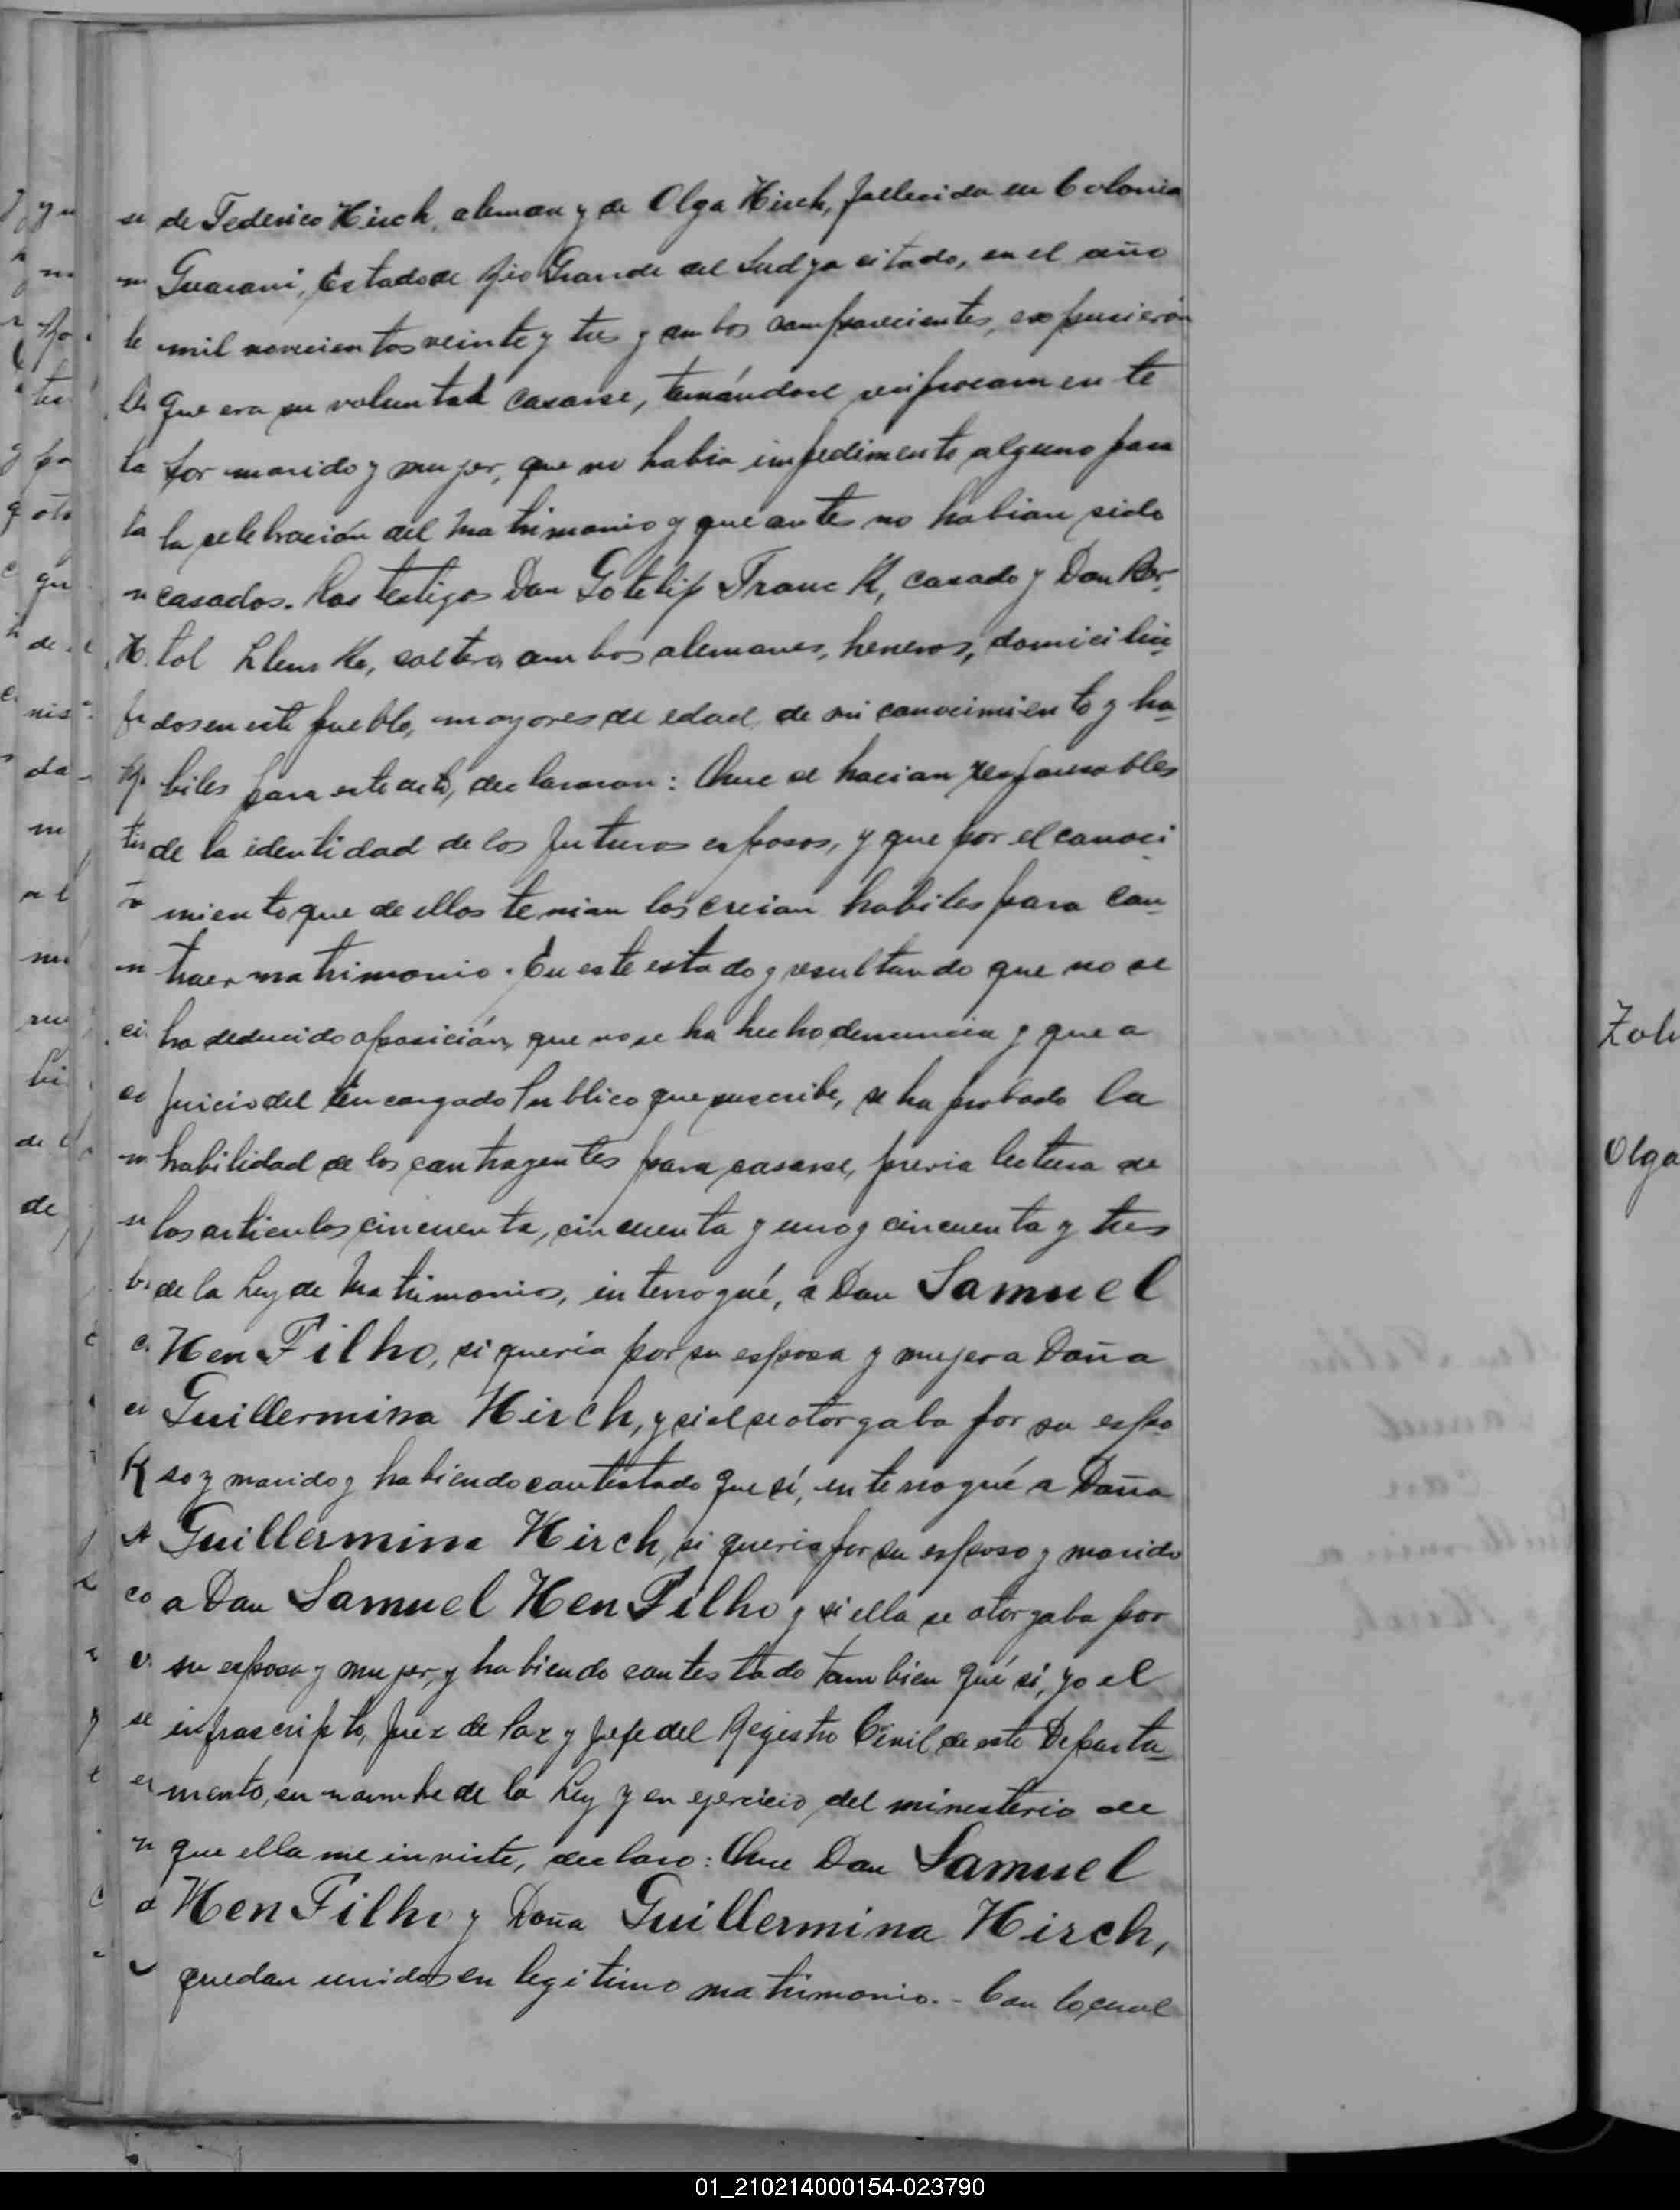 de Federico Hirch, aleman y de Olga Hirch, fallecida en Colonia
Guarani, Estado de Rio Grande del Sud ya citado, en el año
mil novecientos veinte y tres y ambos comparecientes, expusierón
que era su voluntad casarse, tomándose reciprocamente
por marido y mujer, que no habia impedimento alguno para
la celebración del matrimonio y que antes no habian sido
casados. Los testigos Don Gotelip Franc K, casado y Don Ber-
tol, soltero, ambos alemanes, herreros, domicilia
dos en este pueblo, mayores de edad de mi conocimiento y ha
biles para este acto, declararon: Que se hacian responsables
de la identidad de los futuros esposos, y que por el conoci
miento que de ellos tenian los creian habiles para con
traer matrimonio. En este estado y resultando que no se
ha deducido oposición, que no se ha hecho denuncia y que a
juicio del Encargado Publico que suscribe, se ha probado la
habilidad de los contrayentes para casarse, previa lectura de
los articulos cincuenta, cincuenta y uno y cincuenta y tres
de la Ley de Matrimonios, interrogué, a Don Samuel
Hen Filho, si queria por su esposa y mujer a Doña
Guillermina Hirch, y si el se otorgaba por su espo
so y marido y habiendo contestado que sí, interrogué a Doña
Guillermina Hirch, si queria por su esposo y marido
a Don Samuel Hen Filho y si ella se otorgaba por
su esposa y mujer, y habiendo contestado tambien qué sí, yo el
infrascripto, Juez de Paz y Jefe del Registro Civil de este Departa
mento, en nombre de la Ley y en ejercicio del ministerio de
que ella me inviste, declaro: Que Don Samuel
Hen Filho y Doña Guillermina Hirch,
quedan unidos en legitimo matrimonio.- Con lo cual
Olga
01_210214000154-023790